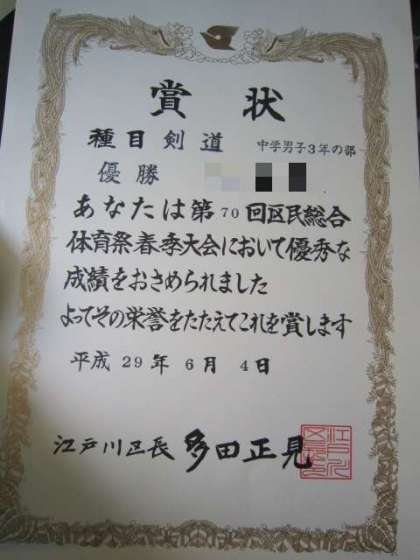 賞状
種目 剣道 中学男子3年の部
優勝
あなたは第70回区民総合
体育祭春季大会において優秀な
成績をおさめられました
よってその栄誉をたたえてこれを賞します
平成29年6月4日
江戸川区長 多田正見